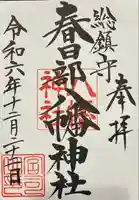 奉拝
総鎮守
春日部八幡神社
八幡
神社
令和六年十二月